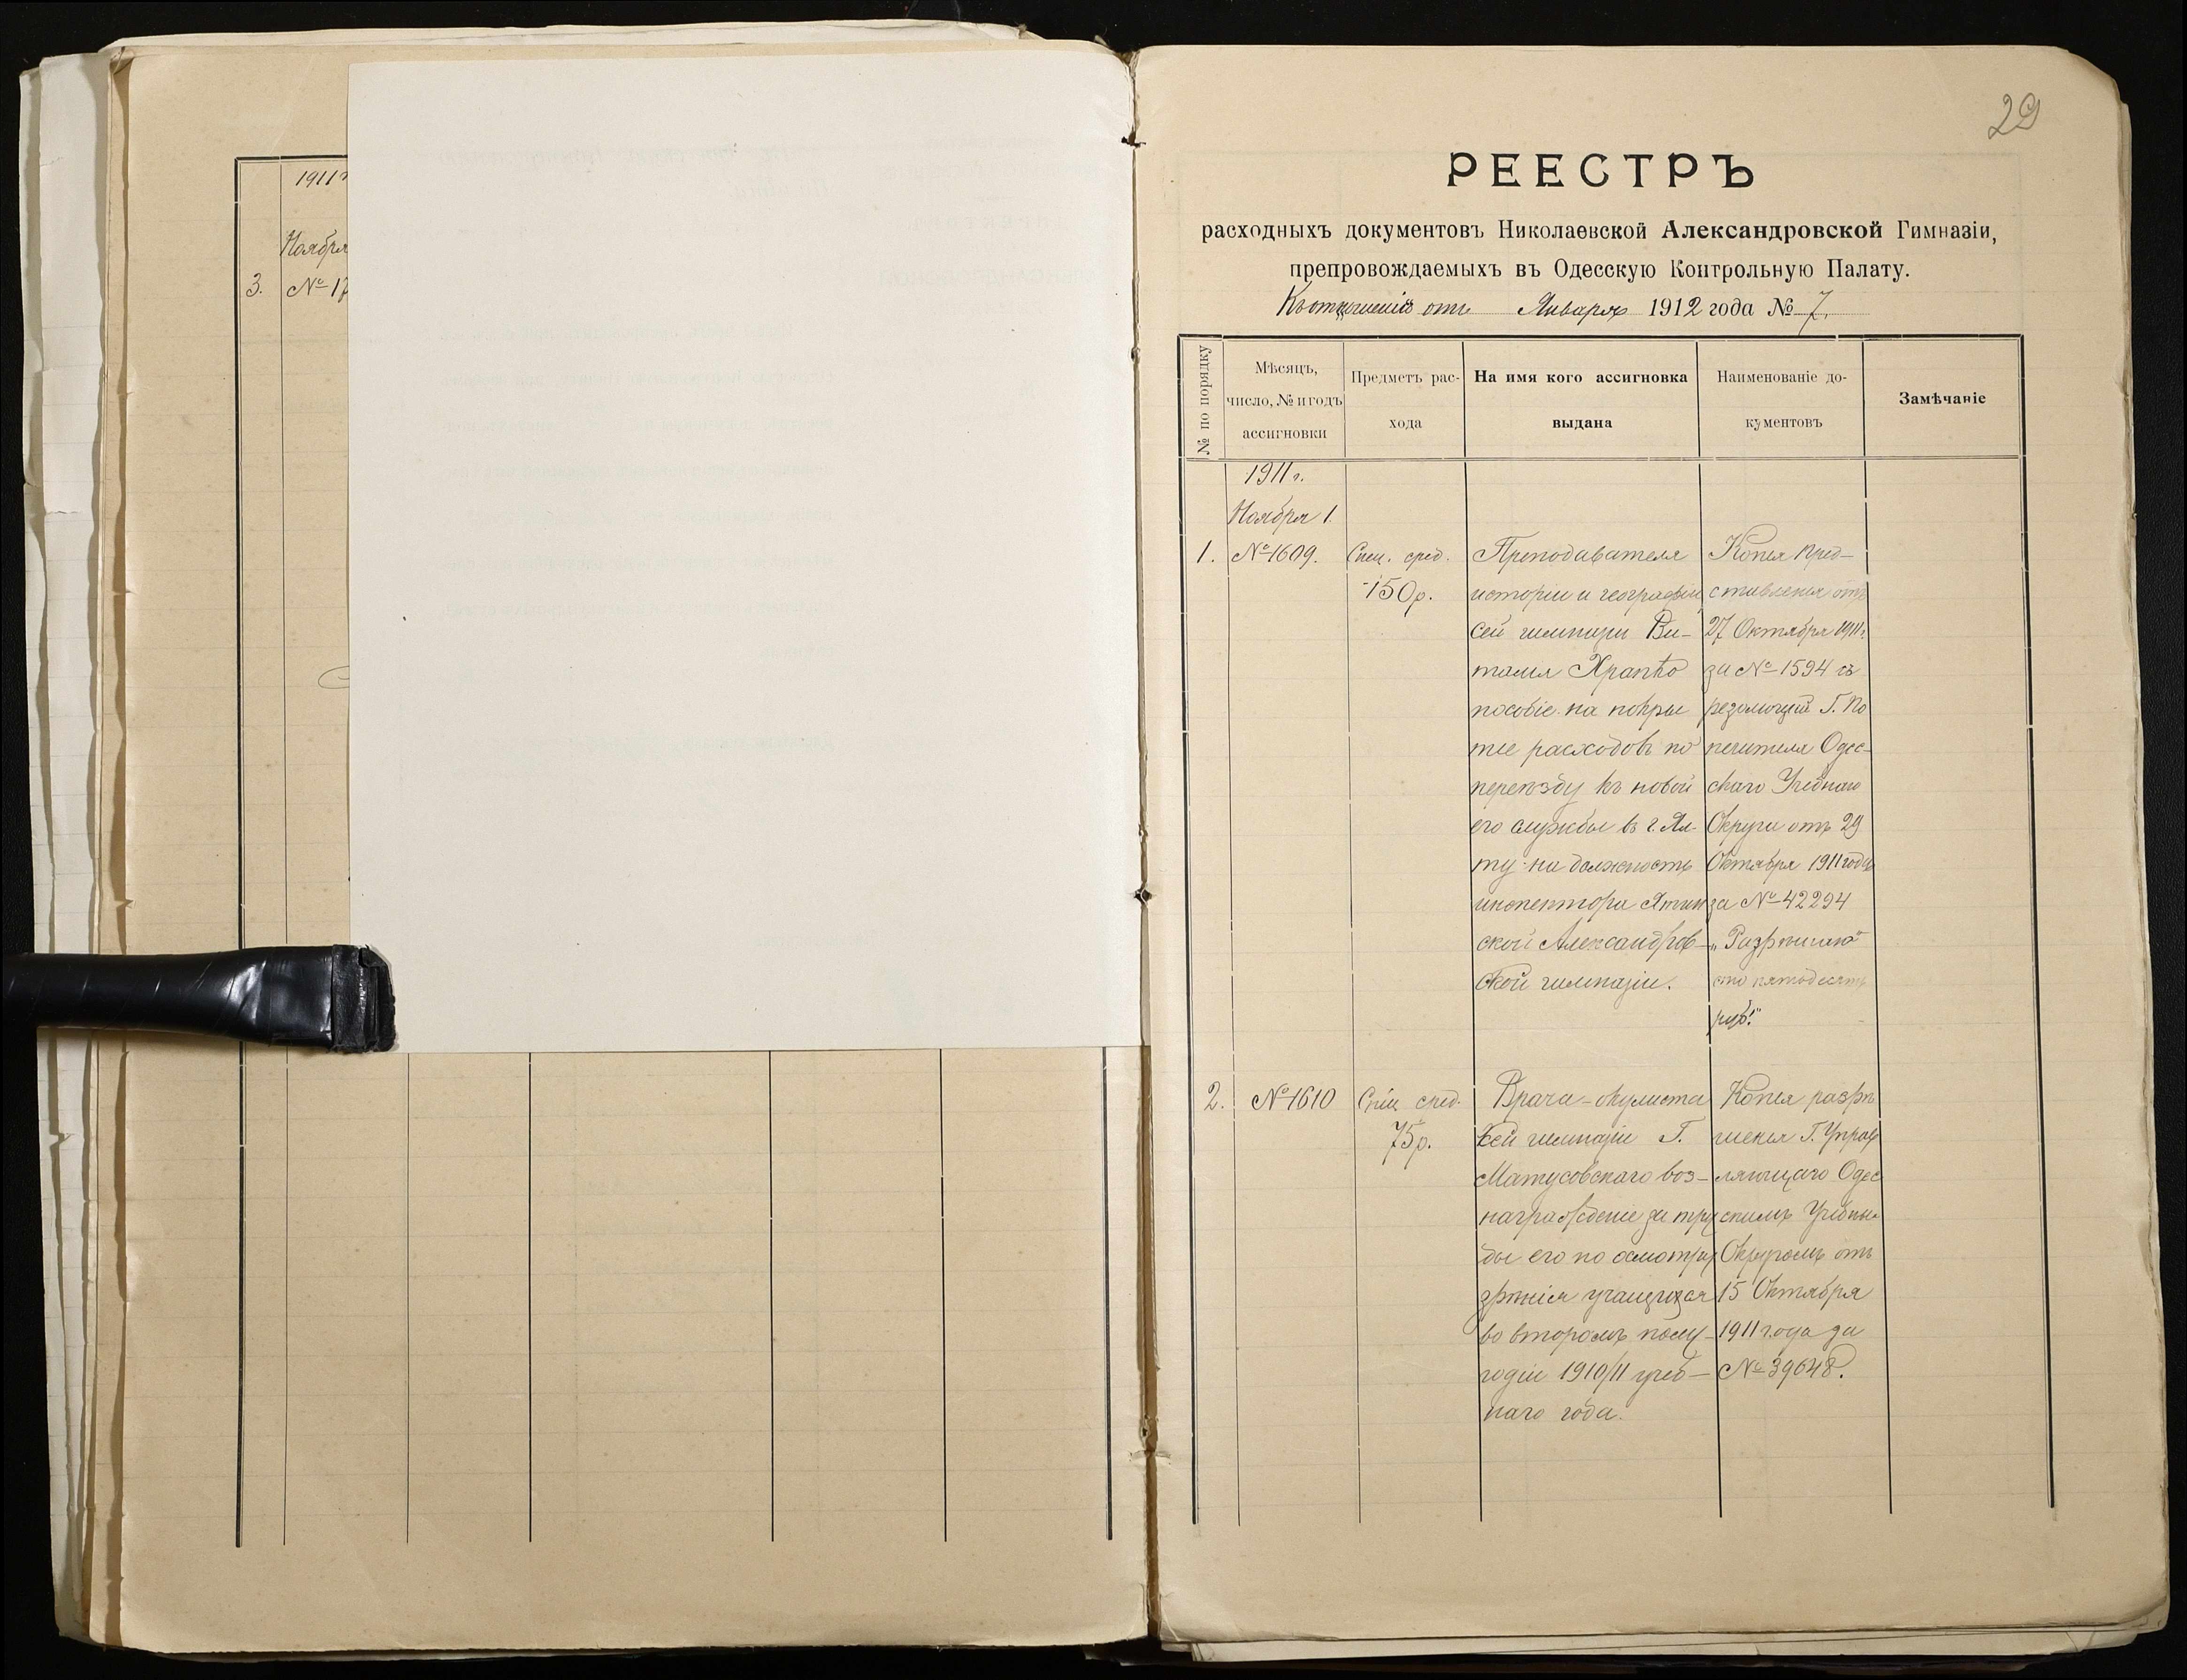 1911 г
Ноября
3. № 17
29
РЕЕСТРЪ
расходныхъ документовъ Николаевской Александровской Гимназіи,
препровождаемыхъ въ Одесскую Контрольную Палату.
Къ отношенію отъ Января 1912 года № 7.
№ по порядку
Мѣсяцъ,
число, № и годъ
ассигновки
Предметъ рас-
хода
На имя кого ассигновка
выдана
Наименованіе до-
кументовъ
Замѣчаніе
1911 г.
Ноября 1.
1. № 1609.
Спец. сред.
150 р.
Преподавателя
исторіи и географіи
сей гимназіи Ви-
талія Храпко
пособіе на покры
тіе расходовъ по
переѣзду къ новой
его службы въ г. Ял-
ту на должность
инспектора Ялтин
ской Александров-
ской гимназіи.
Копія пред-
ставленія отъ
27 Октября 1911 г.
за № 1594 съ
резолюціей Г. По
печителя Одес-
скаго Учебнаго
Округа отъ 29
Октября 1911 года
за № 42294
„Разрѣшаю
сто пятьдесятъ
руб."
2. № 1610
Спец. сред.
75 р.
Врача-окулиста
сей гимназіи Г.
Матусовскаго воз-
награжденіе за тру
ды его по осмотру
зрѣнія учащихся
во второмъ полу-
годіи 1910/11 учеб-
наго года.
Копія разрѣ
шенія Г. Управ
ляющаго Одес
скимъ Учебны
Округомъ отъ
15 Октября
1911 года за
№ 39648.